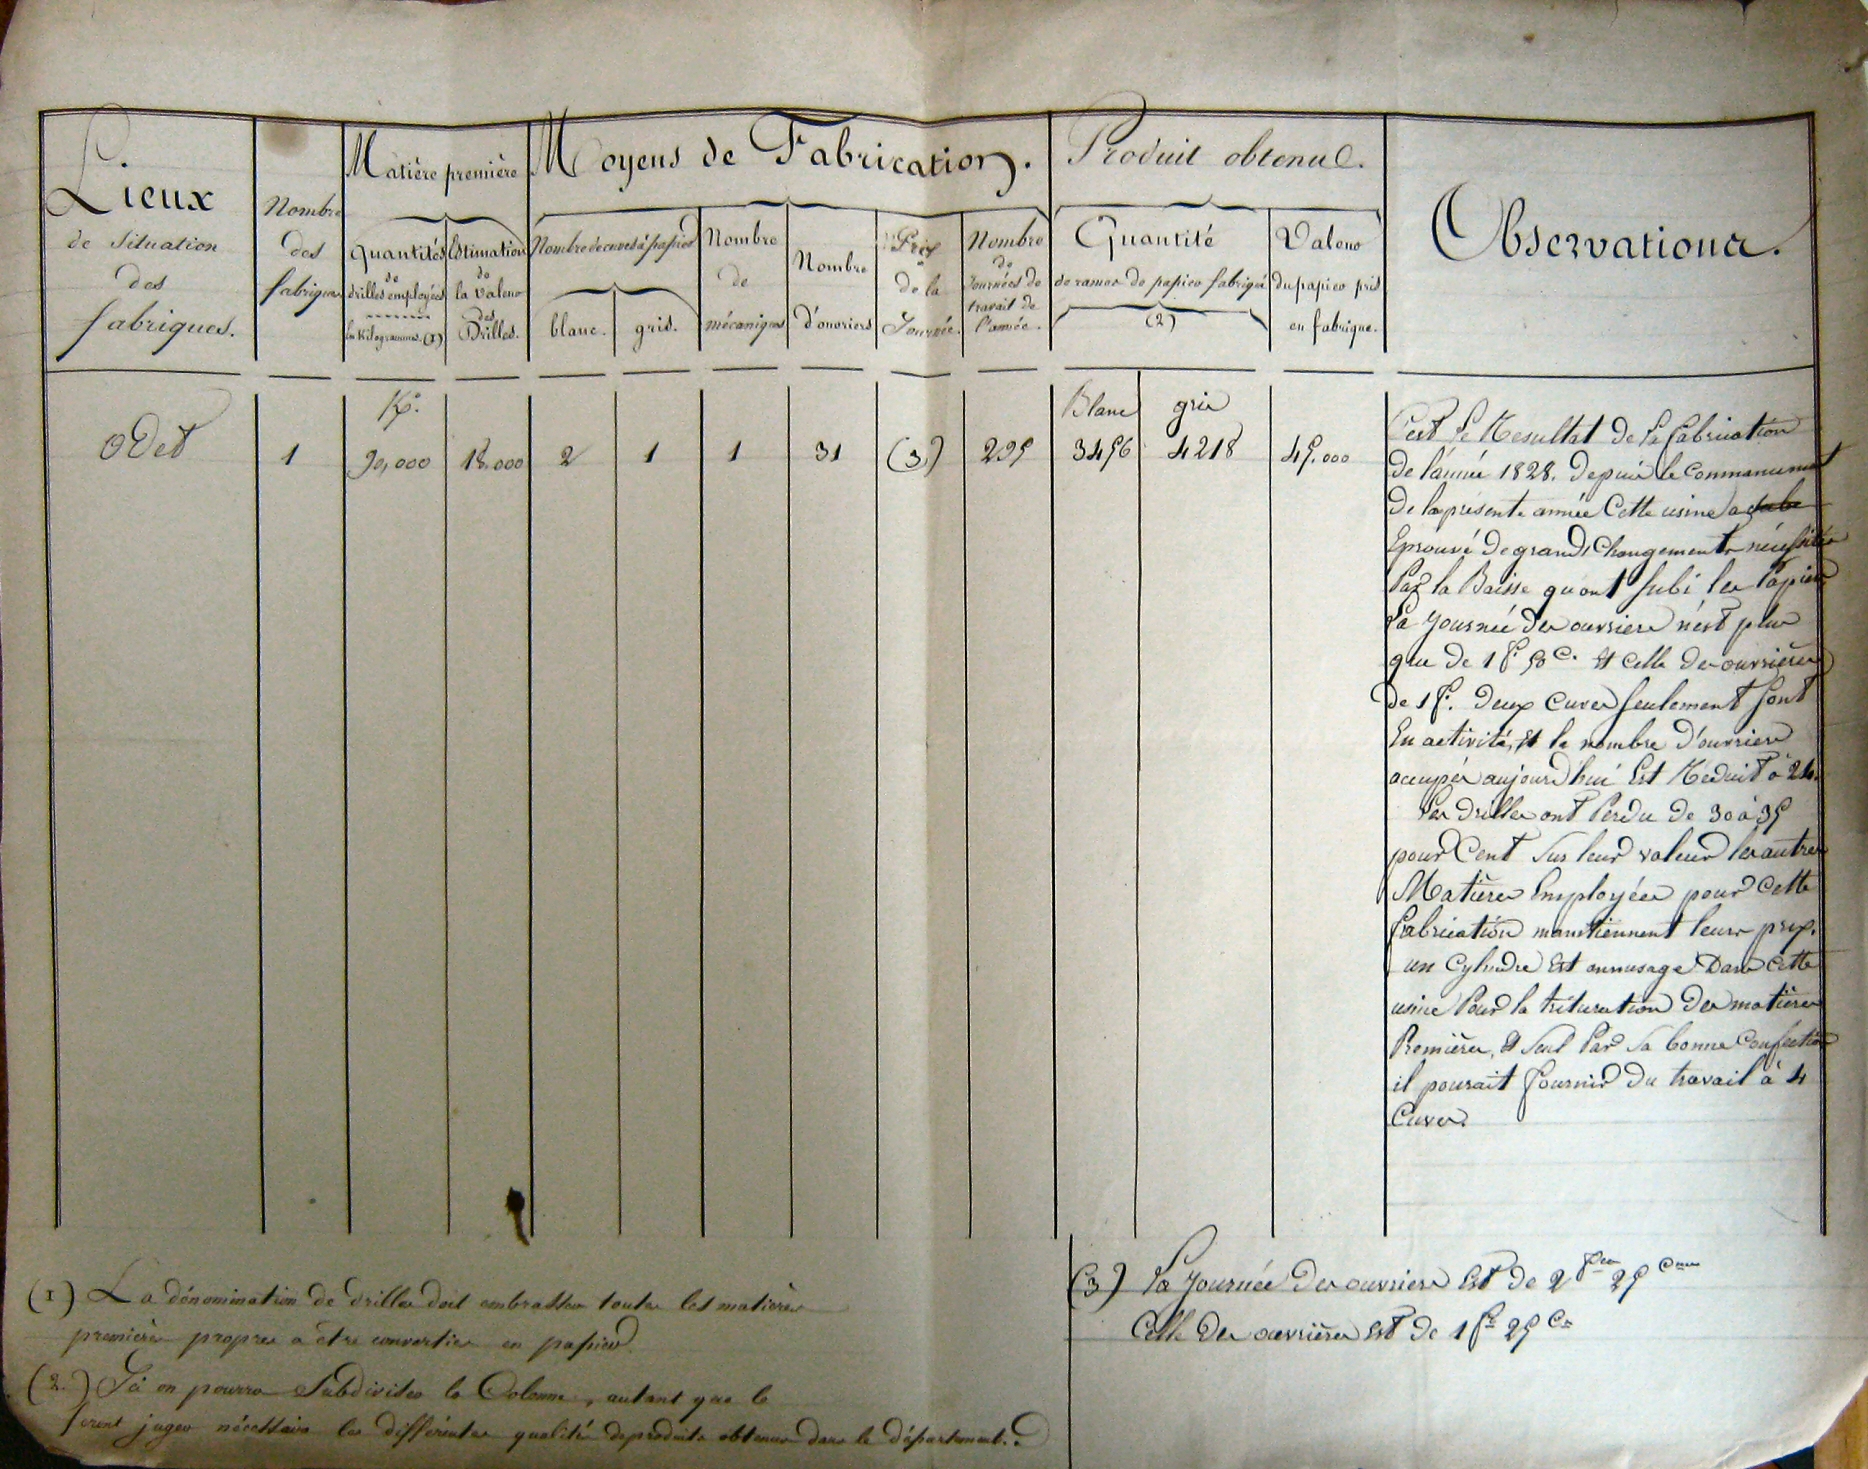 Lieux
de situation
des
fabriques.
Nombre
des
fabriques
Matière première
Quantités
de
drilles employées
en Kilogrammes. (1)
Estimation
de
la valeur
des
Drilles.
Moyens de Fabrication.
Nombre de cuves à papier
blanc.
gris.
Nombre
de
mécaniques
Nombre
d'ouvriers
Prix
de la
Journée.
Nombre
de
Journées de
travail de
l'année.
Produit obtenu.
Quantité
de rames de papier fabriqué
(2)
Valeur
du papier pris
en fabrique.
Observations.
Kos.
Blanc
gris
Odet
1
30,000
18.000
2
1
1
31
(3)
295
3456
4218
45.000
C'est le Resultat de la fabrication
de l'année 1828. Depuis le commancement
de la présente année Cette usine a
Eprouvé de grands Changements nécessités
Par la Baisse qu'ont subi les Papiers
La journée des ouvriers n'est plus
que de 1 f. 50 c. et celle des ouvrières
de 1 f. Deux Cuves seulement sont
En activité, et le nombre d'ouvriers
occupés aujourd'hui Est Réduit à 24.
Les drilles ont Perdu de 30 à 35
pour Cent sur leur valeur les autres
Matières Employées pour Cette
fabrication maintiennent leurs prix.
un Cylindre Est en usage Dans Cette
usine Pour la trituration Des matières
Premières, et seul Par sa bonne Confection
il pourait fournir du travail à 4
Cuves.
(1) La dénomination de drilles doit embrasser toutes les matières
premières propres a être converties en papier.
(2.) Ici on pourra Subdiviser la Colonne, autant que le
feront juger nécessaire les différentes qualités de produits obtenus dans le département.
(3) La journée des ouvriers Est de 2 fcs 25 cmes
Celle Des ouvrières Est de 1 fc 25 Cs